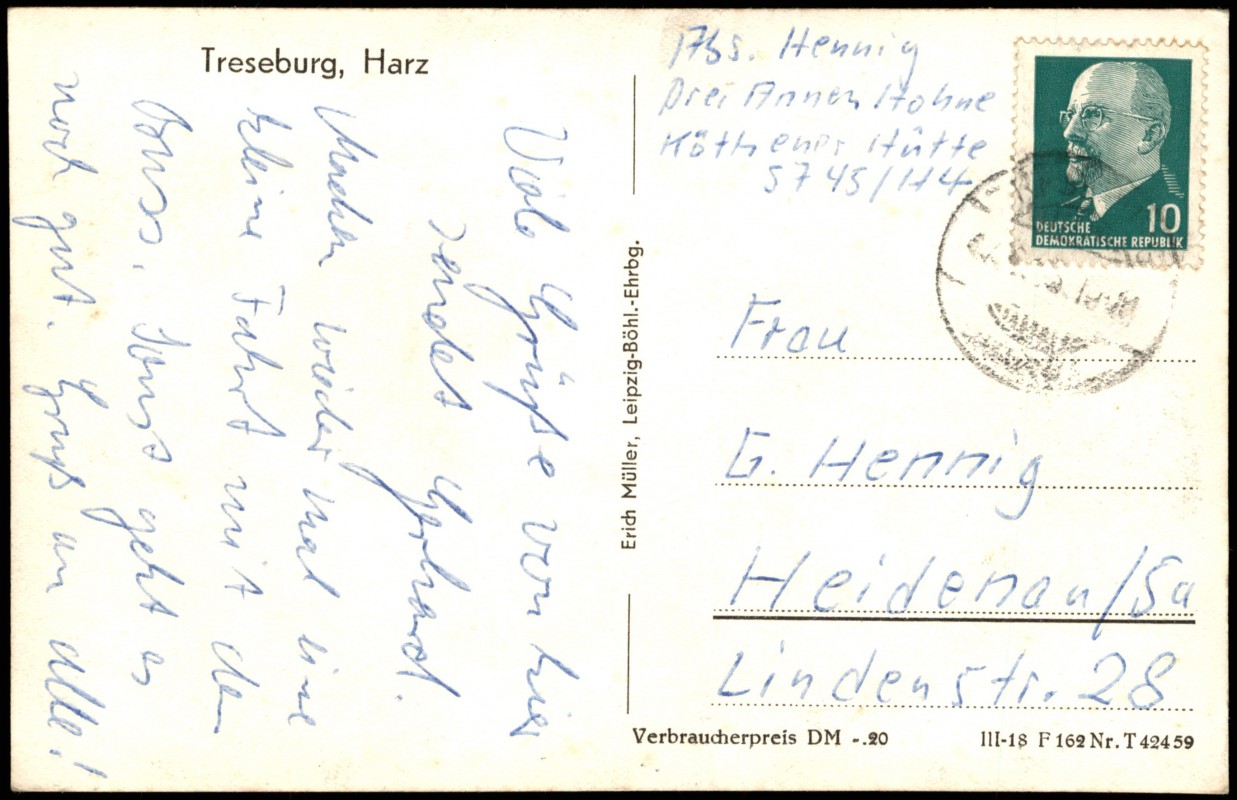 Treseburg, Harz
Viele Grüße von hier
sendet Gerhard.
Machen wieder mal eine
kleine Fahrt mit dem
Buss. Sonst geht es
noch gut. Gruß an alle!
Erich Müller, Leipzig-Böhl.-Ehrbg.
Abs. Hennig
Drei Annen Hohne
Köthener Hütte
5745/44
DEUTSCHE
DEMOKRATISCHE REPUBLIK
10
Frau
G. Hennig
Heidenau/Sa
Lindenstr. 28
Verbraucherpreis DM -.20
III-18 F 162 Nr. T 42459